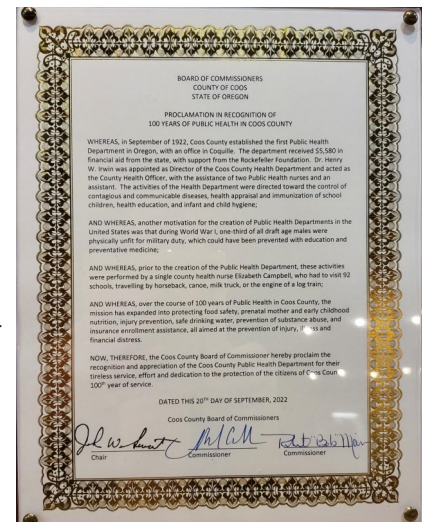 BOARD OF COMMISSIONERS
COUNTY OF COOS
STATE OF OREGON
PROCLAMATION IN RECOGNITION OF
100 YEARS OF PUBLIC HEALTH IN COOS COUNTY
WHEREAS, in September of 1922, Coos County established the first Public Health
Department in Oregon, with an office in Coquille. The department received $5,580 in
financial aid from the state, with support from the Rockefeller Foundation. Dr. Henry
W. Irwin was appointed as Director of the Coos County Health Department and acted as
the County Health Officer, with the assistance of two Public Health nurses and an
assistant. The activities of the Health Department were directed toward the control of
contagious and communicable diseases, health appraisal and immunization of school
children, health education, and infant and child hygiene;
AND WHEREAS, another motivation for the creation of Public Health Departments in the
United States was that during World War I, one-third of all draft age males were
physically unfit for military duty, which could have been prevented with education and
preventative medicine;
AND WHEREAS, prior to the creation of the Public Health Department, these activities
were performed by a single county health nurse Elizabeth Campbell, who had to visit 92
schools, travelling by horseback, canoe, milk truck, or the engine of a log train;
AND WHEREAS, over the course of 100 years of Public Health in Coos County, the
mission has expanded into protecting food safety, prenatal mother and early childhood
nutrition, injury prevention, safe drinking water, prevention of substance abuse, and
insurance enrollment assistance, all aimed at the prevention of injury, illness and
financial distress.
NOW, THEREFORE, the Coos County Board of Commissioner hereby proclaim the
recognition and appreciation of the Coos County Public Health Department for their
tireless service, effort and dedication to the protection of the citizens of Coos County
100th year of service.
DATED THIS 20TH DAY OF SEPTEMBER, 2022
Coos County Board of Commissioners
Chair Commissioner Commissioner